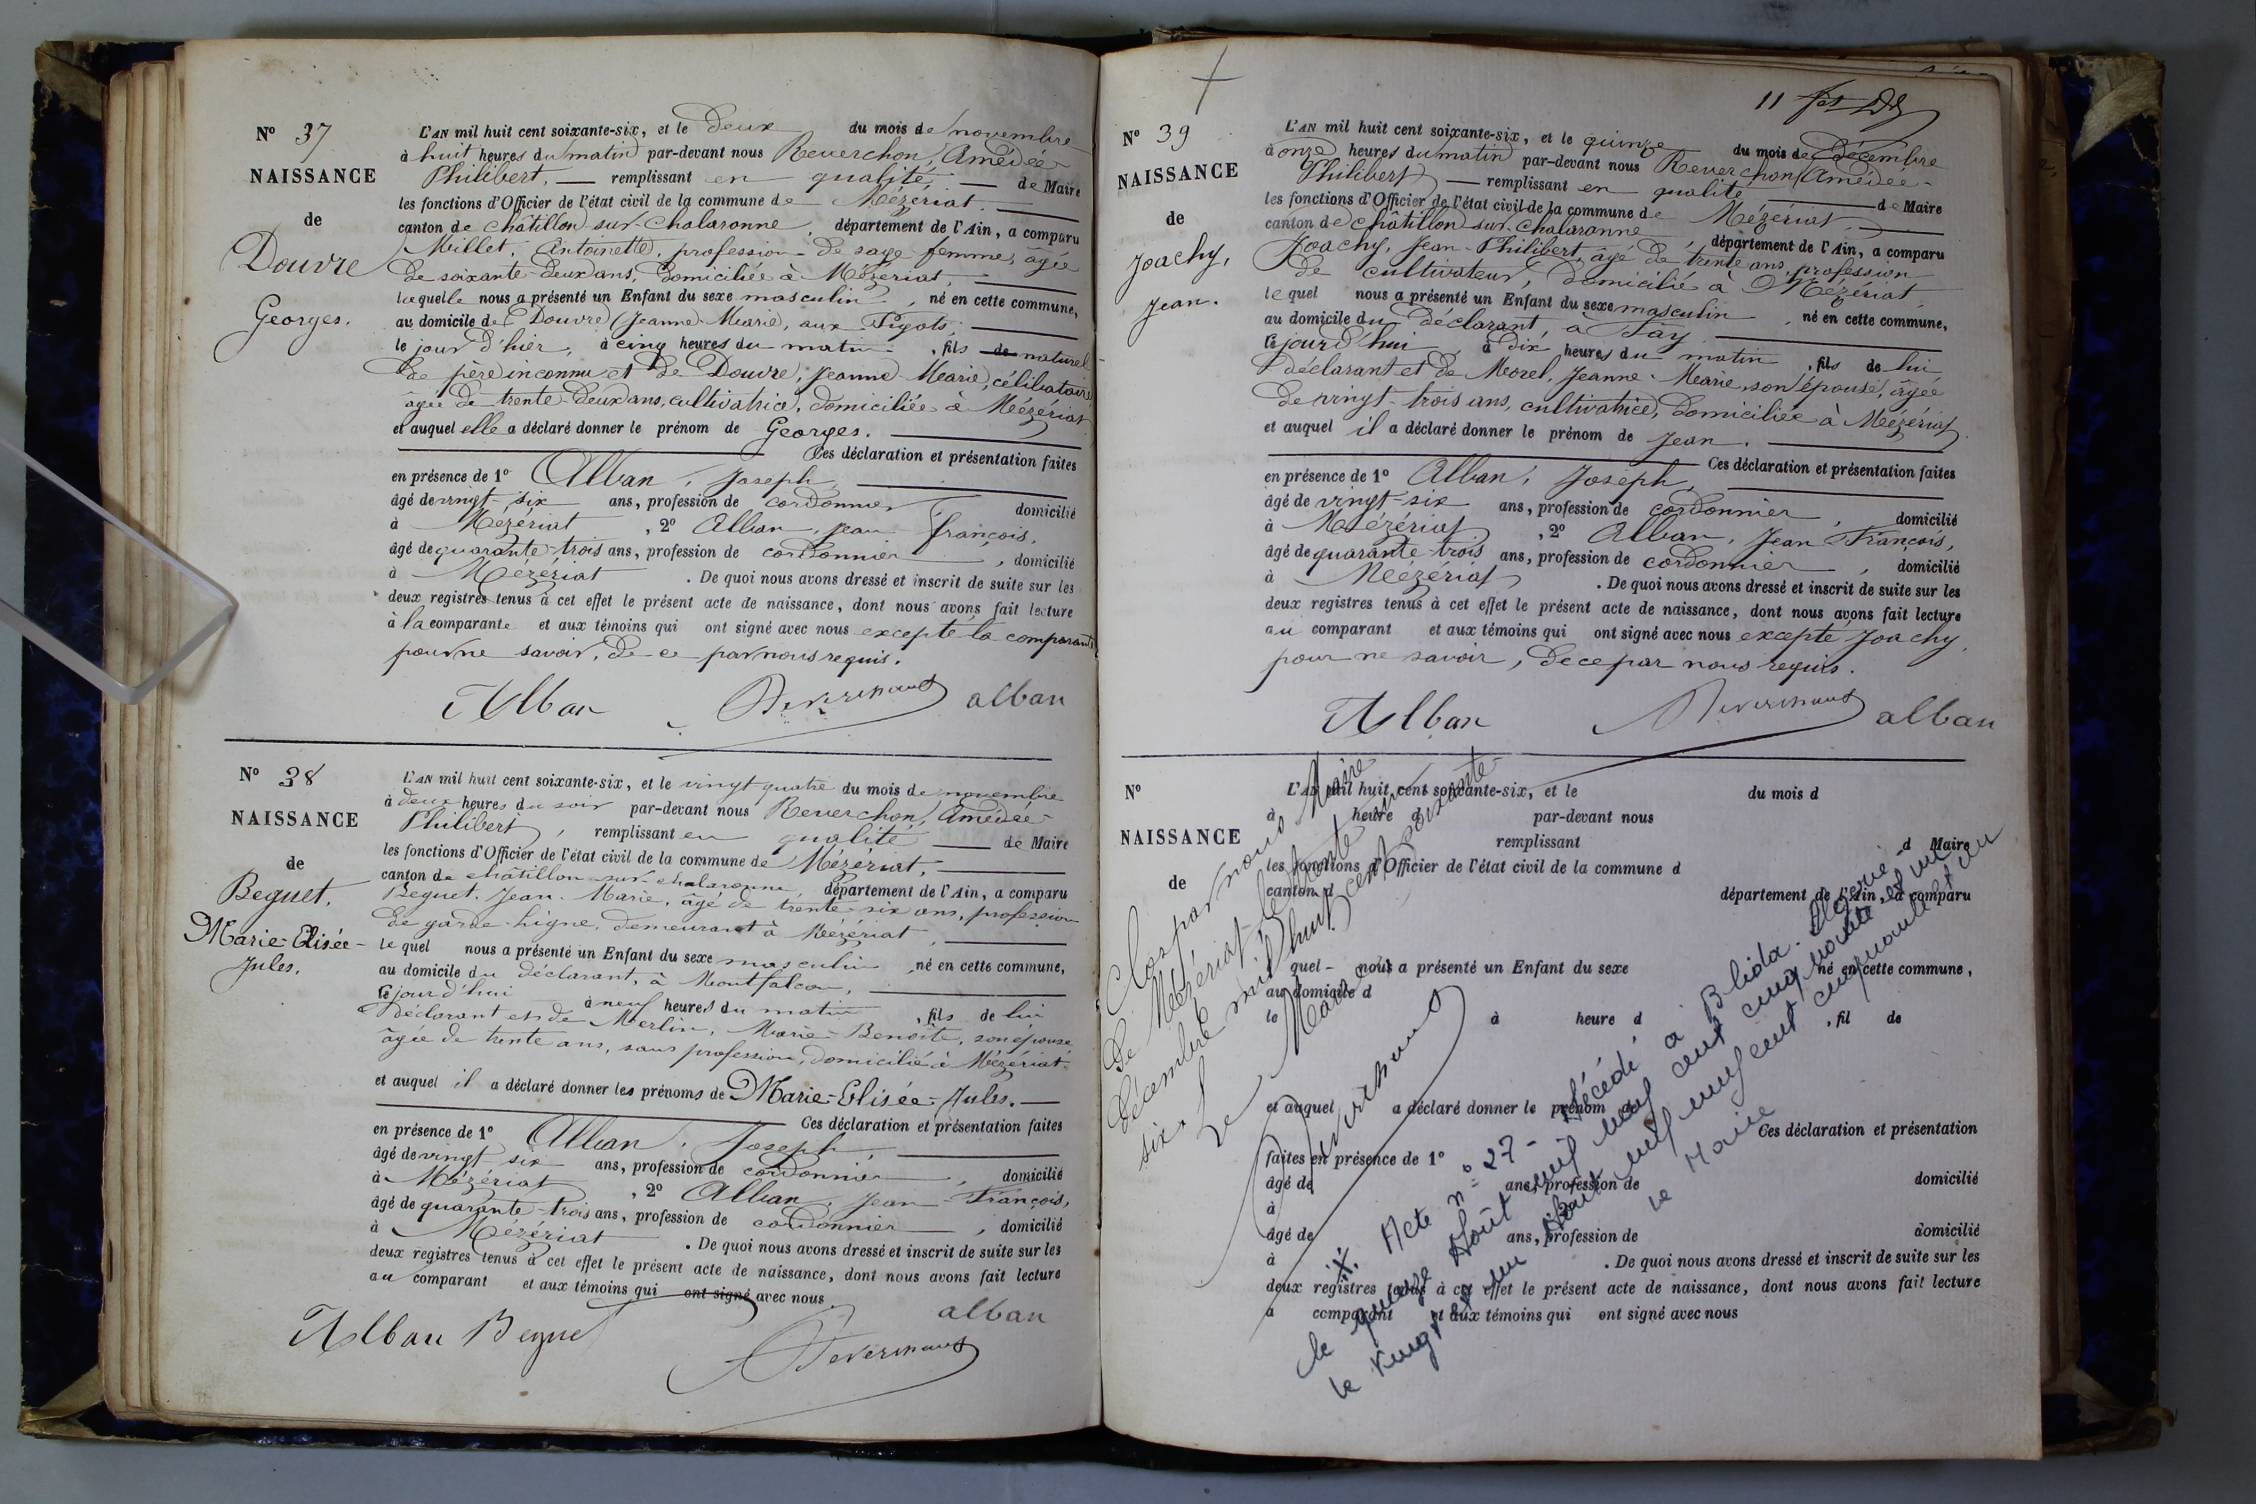 N° 37
NAISSANCE
de
Douvre
Georges.
L'AN mil huit cent soixante-six, et le deux du mois de novembre
à huit heures du matin par-devant nous Reverchon, Amédée
Philibert, remplissant en qualité, de Maire
les fonctions d'Officier de l'état civil de la commune de Mézériat
canton de Châtillon sur Chalaronne, département de l'Ain, a comparu
Millet, Antoinette, profession de sage femme, âgée
de soixante deux ans, domiciliée à Mézériat,
laquelle nous a présenté un Enfant du sexe masculin, né en cette commune,
au domicile de Douvre (Jeanne Marie), aux Pigots
le jour d'hier, à cinq heures du matin, fils de naturel
de père inconnu et de Douvre, Jeanne Marie, célibataire
âgée de trente deux ans, cultivatrice, domiciliée à Mézériat
et auquel elle a déclaré donner le prénom de Georges.
Ces déclaration et présentation faites
en présence de 1° Alban, Joseph,
âgé de vingt-six ans, profession de cordonnier domicilié
à Mézériat, 2° Alban, Jean François,
âgé de quarante trois ans, profession de cordonnier, domicilié
à Mézériat. De quoi nous avons dressé et inscrit de suite sur les
deux registres tenus à cet effet le présent acte de naissance, dont nous avons fait lecture
à la comparante et aux témoins qui ont signé avec nous excepté la comparante
pour ne savoir, de ce par nous requis.
Alban Reverchon alban
N° 38
NAISSANCE
de
Beguet,
Marie-Elisée-
Jules.
L'AN mil huit cent soixante-six, et le vingt quatre du mois de novembre
à deux heures du soir par-devant nous Reverchon, Amédée
Philibert, remplissant en qualité de Maire
les fonctions d'Officier de l'état civil de la commune de Mézériat,
canton de châtillon sur chalaronne, département de l'Ain, a comparu
Beguet, Jean Marie, âgé de trente six ans, profession
de garde-ligne, demeurant à Mézériat,
lequel nous a présenté un Enfant du sexe masculin, né en cette commune,
au domicile du déclarant, à Montfalcon,
le jour d'hui à neuf heures du matin, fils de lui
déclarant et de Merlin, Marie-Benoîte, son épouse
âgée de trente ans, sans profession, domicilié à Mézériat.
et auquel il a déclaré donner les prénoms de Marie-Elisée-Jules.
Ces déclaration et présentation faites
en présence de 1° Alban, Joseph,
âgé de vingt six ans, profession de cordonnier, domicilié
à Mézériat, 2° Alban, Jean-François,
âgé de quarante-trois ans, profession de cordonnier, domicilié
à Mézériat. De quoi nous avons dressé et inscrit de suite sur les
deux registres tenus à cet effet le présent acte de naissance, dont nous avons fait lecture
au comparant et aux témoins qui ont signé avec nous
Alban Beguet Reverchon alban
11
N° 39
NAISSANCE
de
Joachy,
Jean.
L'AN mil huit cent soixante-six, et le quinze du mois de Décembre
à onze heures du matin par-devant nous Reverchon (Amédée
Philibert) remplissant en qualité de Maire
les fonctions d'Officier de l'état civil de la commune de Mézériat
canton de Châtillon sur Chalaronne, département de l'Ain, a comparu
Joachy, Jean-Philibert, âgé de trente ans, profession
de cultivateur, domicilié à Mézériat,
lequel nous a présenté un Enfant du sexe masculin, né en cette commune,
au domicile du déclarant, à Fay
le jourd'hui à dix heures du matin, fils de lui
déclarant et de Morel, Jeanne-Marie, son épouse, âgée
de vingt-trois ans, cultivatrice, domiciliée à Mézériat
et auquel il a déclaré donner le prénom de Jean.
Ces déclaration et présentation faites
en présence de 1° Alban, Joseph,
âgé de vingt-six ans, profession de cordonnier, domicilié
à Mézériat, 2° Alban, Jean François,
âgé de quarante trois ans, profession de cordonnier, domicilié
à Mézériat. De quoi nous avons dressé et inscrit de suite sur les
deux registres tenus à cet effet le présent acte de naissance, dont nous avons fait lecture
au comparant et aux témoins qui ont signé avec nous excepté Joachy,
pour ne savoir, de ce par nous requis.
Alban Reverchon alban
N°
NAISSANCE
de
L'AN mil huit cent soixante-six, et le du mois d
à heure d par-devant nous
remplissant d Maire
les fonctions d'Officier de l'état civil de la commune d
canton d département de l'Ain, a comparu
quel nous a présenté un Enfant du sexe né en cette commune,
au domicile d
le à heure d, fil de
et auquel a déclaré donner le prénom de
Ces déclaration et présentation
faites en présence de 1°
âgé de ans, profession de domicilié
à
âgé de ans, profession de domicilié
à . De quoi nous avons dressé et inscrit de suite sur les
deux registres tenus à cet effet le présent acte de naissance, dont nous avons fait lecture
a comparant et aux témoins qui ont signé avec nous
Clos par nous Maire
de Mézériat le trente et un
décembre mil huit cent soixante
six.
Le Maire
Reverchon
Acte n° 27 - Décédé à Blida. Algérie
le quinze Août mil neuf cent cinquante et un
le vingt et un Août mil neuf cent cinquante et un
le Maire